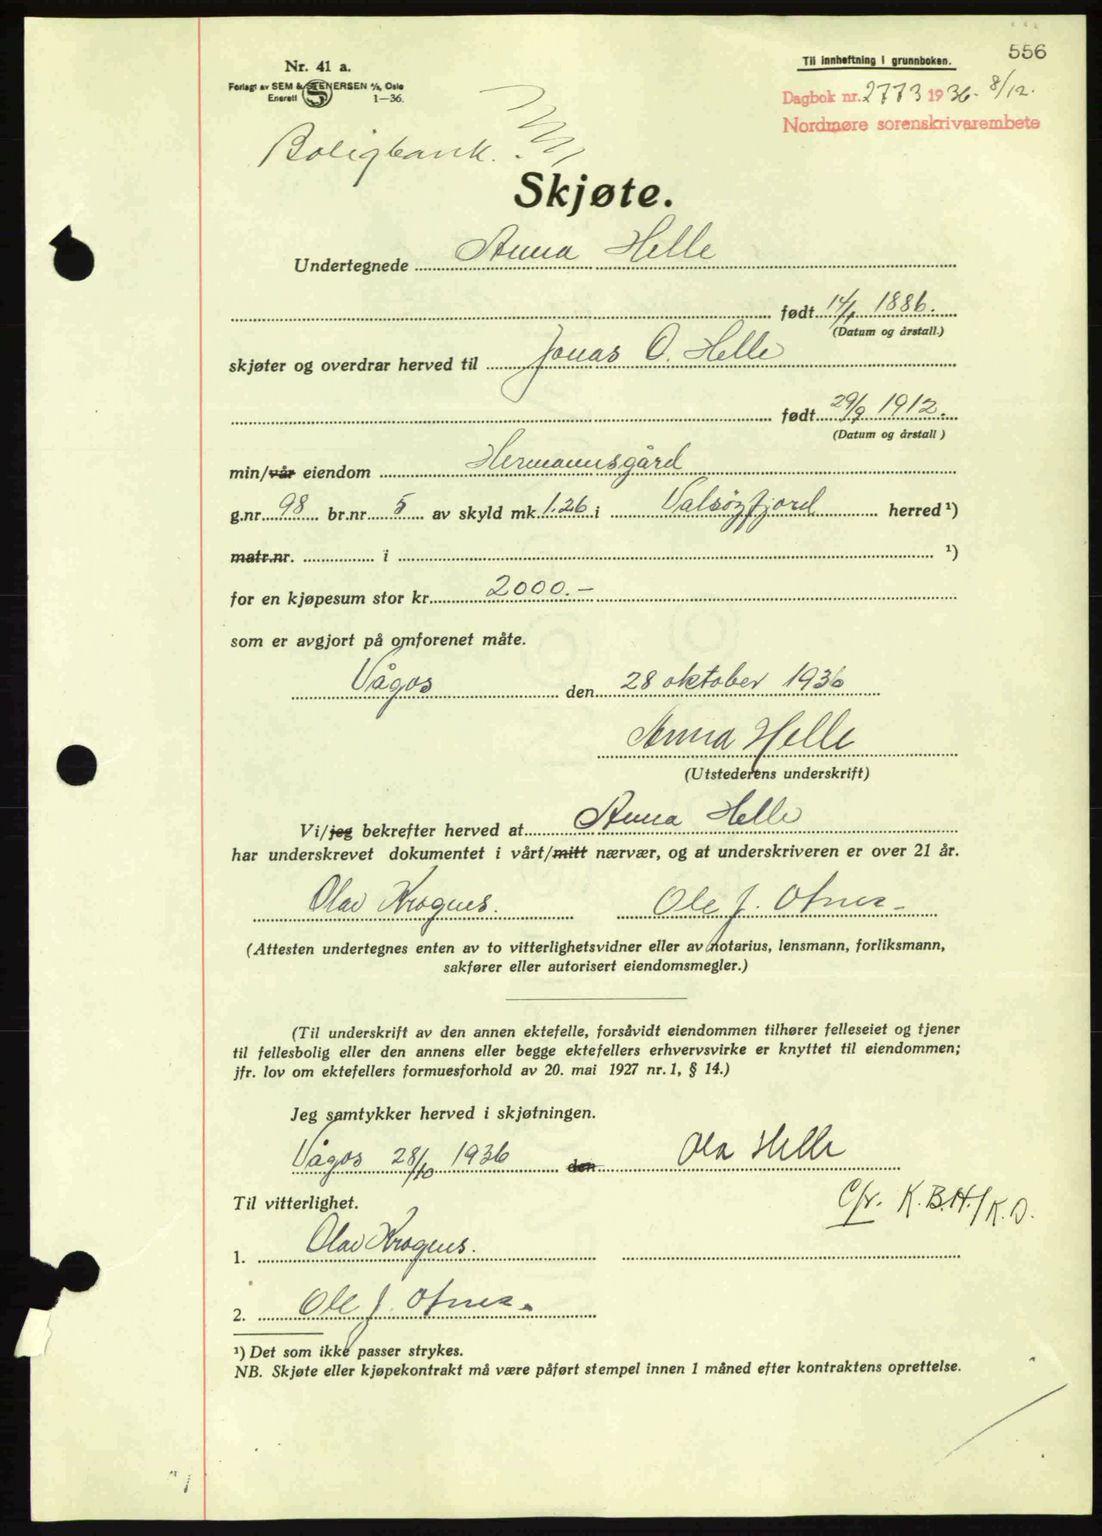 556
Nr. 41 a.
Forlagt av SEM & STENERSEN A/S, Oslo
Enerett 1—36.
Til innheftning i grunnboken.
Dagbok nr. 2773 1936. 8/12.
Nordmøre sorenskrivarembete
Boligbank.
Skjøte.
Undertegnede Anna Helle
født 14/1 1886.
(Datum og årstall.)
skjøter og overdrar herved til Jonas O. Helle
født 29/9 1912.
(Datum og årstall)
min/vår eiendom Hermannsgård
g.nr. 98 br.nr. 5 av skyld mk. 1.26 i Valsøyfjord herred ¹)
matr.nr. i ¹)
for en kjøpesum stor kr. 2000.-
som er avgjort på omforenet måte.
Vågos den 28 oktober 1936
Anna Helle
(Utstederens underskrift)
Vi/jeg bekrefter herved at Anna Helle
har underskrevet dokumentet i vårt/mitt nærvær, og at underskriveren er over 21 år.
Olav Krognes. Ole J. Otnes
(Attesten undertegnes enten av to vitterlighetsvidner eller av notarius, lensmann, forliksmann,
sakfører eller autorisert eiendomsmegler.)
(Til underskrift av den annen ektefelle, forsåvidt eiendommen tilhører felleseiet og tjener
til fellesbolig eller den annens eller begge ektefellers erhvervsvirke er knyttet til eiendommen;
jfr. lov om ektefellers formuesforhold av 20. mai 1927 nr. 1, § 14.)
Jeg samtykker herved i skjøtningen.
Vågos 28/10 1936 den Ola Helle
Cfr. K.B.H./K.D.
Til vitterlighet.
1. Olav Krognes.
2. Ole J. Otnes.
¹) Det som ikke passer strykes.
NB. Skjøte eller kjøpekontrakt må være påført stempel innen 1 måned efter kontraktens oprettelse.